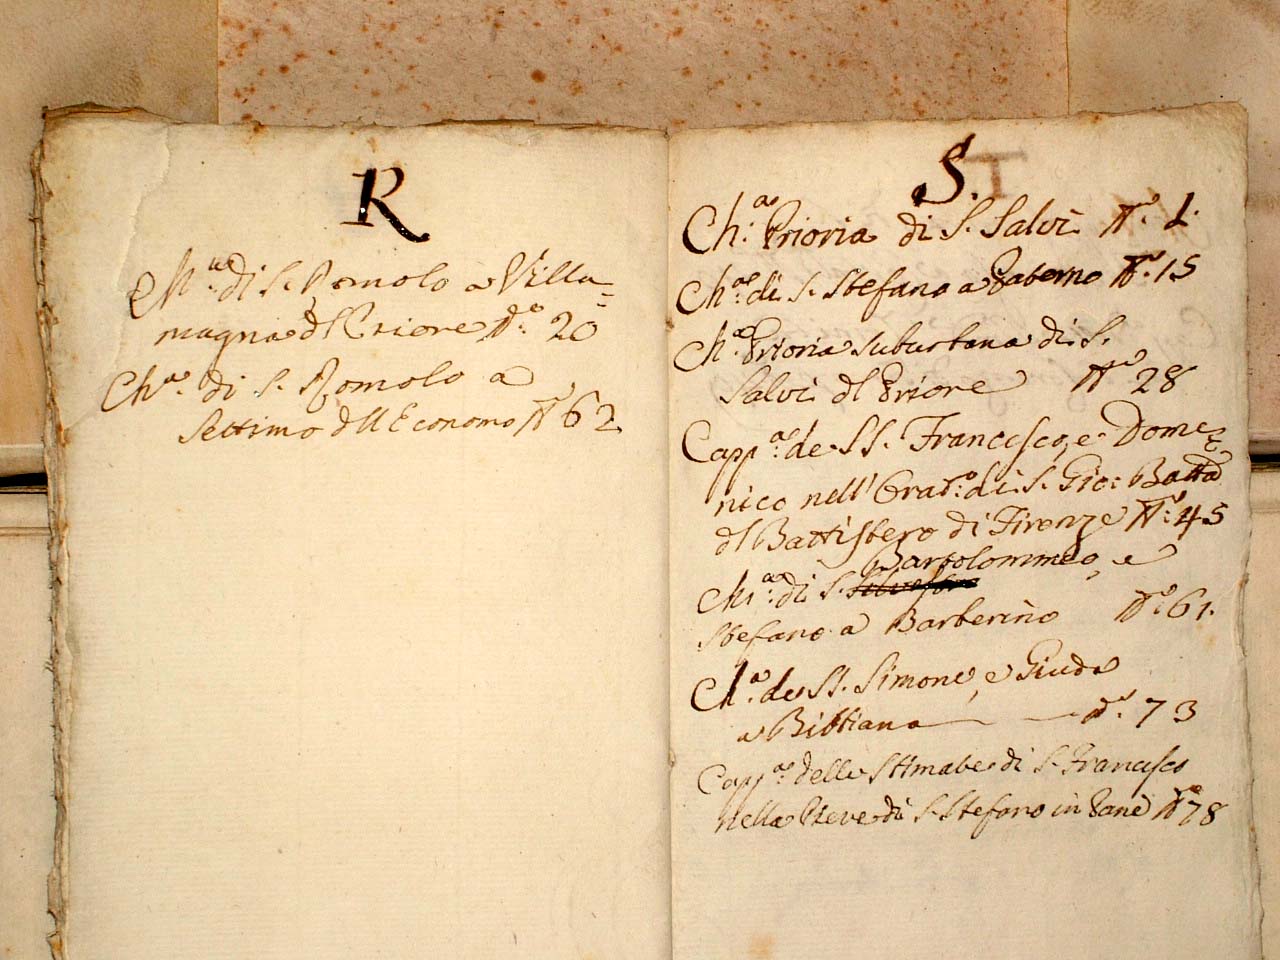 R
Ch.a di S. Romolo a Villa=
magna dl Priore N.o 20
Ch.a di S. Romolo a
Settimo dll Economo N.o 62
S.
Ch.a Prioria di S. Salvi N.o 1.
Ch.a di S. Stefano a N.o 15
Ch.a Prioria suburbana di S.
Salvi dl Priore N.o 28
Capp.a de SS. Francesco, e Dome=
nico nell' Orat.o di S. Gio: Batta
dl Battistero di Firenze N.o 45
Bartolommeo, e
Ch.a di S. Silvestro
Stefano a Barberino N.o 61.
Ch.a de SS. Simone, e Giuda
a Bibbiana N.o 73
Capp.a delle Stimate di S. Francesco
nella Pieve di S. Stefano in Pane N.o 78